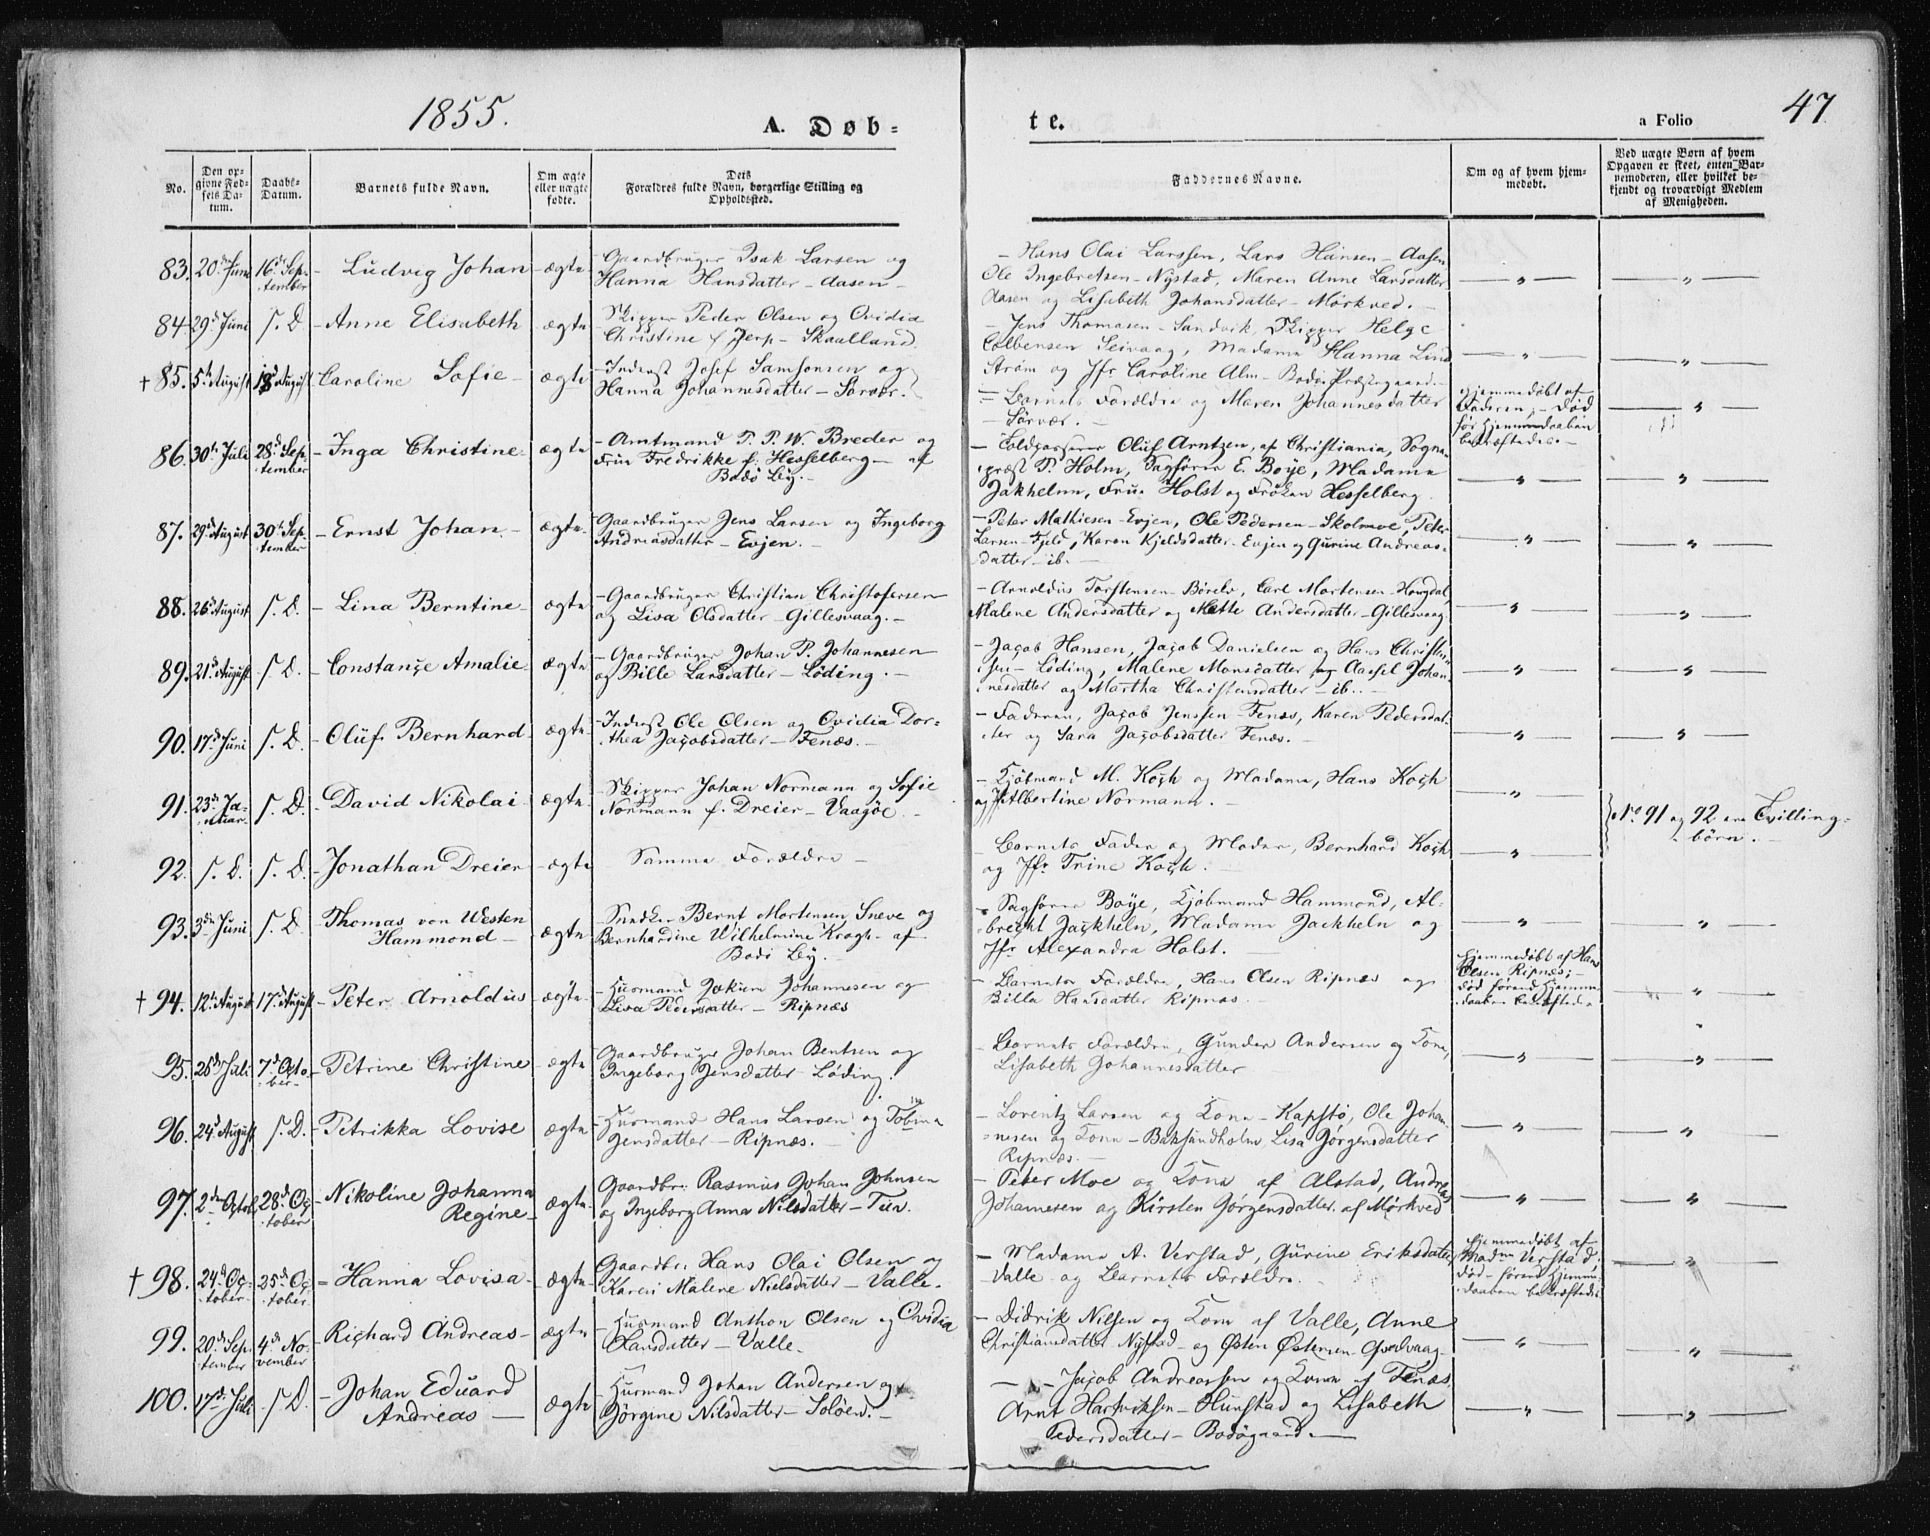 1855.
A. Døb-
te.
a Folio
47
No.
Den op-
givne Fød-
sels Da-
tum.
Daabs-
Datum.
Barnets fulde Navn.
Om ægte
eller uægte
fødte.
Dets
Forældres fulde Navn, borgerlige Stilling og
Opholdssted.
Faddernes Navne.
Om og af hvem hjem-
medøbt.
Ved uægte Børn af hvem
Opgaven er skeet, enten Bar-
nemoderen, eller hvilket be-
kjendt og troværdigt Medlem
af Menigheden.
83. 20de Juni 16de Sep-
tember
- Ludvig Johan - ægte
Gaardbruger Isak Larsen og
Hanna Hansdatter - Aasen -
- Hans Olai Larssen, Lars Hansen - Aasen
Ole Ingebretsen - Nystad, Maren Anne Larsdatter
Aasen og Lisabeth Johansdatter - Mørkved. -
84 29de Juni s. D. - Anne Elisabeth ægte
- Skipper Peder Olsen og Ovidia
Christine f. Jerp - Skaalland.
- Jens Thomasen - Sandvik, Skipper Helge
Colbensen Seivaag, Madame Hanna Lind
Strøm og Jfr. Caroline Alm - Bodø Præstegaard. -
† 85. 5te August 18de August Caroline Sofie - ægte
- Inderst Josef Samsonsen og
Hanna Johannesdatter - Sørvær.
- Barnets Forældre og Maren Johannesdatter
- Sørvær. -
Hjemmedøbt af
Faderen, - Død
før Hjemmedaaben
bekræftedes. -
86. 30te Juli 28de Sep-
tember
- Inga Christine - ægte
- Amtmand P. P. W. Breder og
Frue Fredrikke f. Hesselberg - af
Bodø By. -
- Toldkasserer Oluf Arntzen, af Christiania, Sogne-
præst P. Holm, Sagfører E. Boye, Madame
Jakhelnn, Frue Holst og Frøken Hesselberg.
87. 29de August 30te Sep-
tember
- Ernst Johan - ægte
- Gaardbruger Jens Larsen og Ingeborg
Andreasdatter - Evjen. -
- Peter Mathiesen - Evjen, Ole Pedersen - Skolmoe, Peter
Larsen - Fjeld, Karen Kjeldsdatter - Evjen og Gurine Andreas-
datter - ib. -
88. 26de August s. D. - Lina Berntine - ægte
- Gaardbruger Christian Christofersen
og Lisa Olsdatter - Gillesvaag. -
- Arnoldus Torstensen - Børelv, Carl Mortensen - Hougdal,
Malene Andersdatter og Mette Andersdatter - Gillesvaag.
89. 21de August s. D. - Constance Amalie - ægte
- Gaardbruger Johan P. Johannesen
og Bille Larsdatter - Løding. -
- Jacob Hansen, Jacob Danielsen og Hans Christen-
sen - Løding, Malene Monsdatter og Aassel Johan-
nesdatter og Martha Christensdatter - ib. -
90. 17de Juni s. D. - Oluf Bernhard - ægte
- Inderst Ole Olsen og Ovidia Dor-
thea Jacobsdatter - Fenæs. -
- Faderen, Jacob Jenssen - Fenæs, Karen Pedersdat-
ter og Sara Jacobsdatter Fenæs. -
91. 23de Ja-
nuar
s. D. - David Nikolai - ægte
- Skipper Johan Normann og Sofie
Normann f. Dreier - Vaagøe -
- Kjøbmand M. Koch og Madame, Hans Koch
og Albertine Normann. -
No 91 og 92 ere Tvilling-
børn.
92. s. D. s. D. - Jonathan Dreier - ægte
Samme Forældre -
- Barnets Fader og Moder, Bernhard Koch
og Jfr. Trine Koch. -
93. 3de Juni s. D. - Thomas von Westen
Hammond -
ægte
- Bernt Mortensen Sneve og
Bernhardine Wilhelmine Krogh - af
Bodø By. -
- Sagfører Boye, Kjøbmand Hammond, Al-
brecht Jackheln, Madame Jackheln og
Jfr. Alexandra Holst. -
† 94. 12te August 17de August - Peter Arnoldus - ægte
- Husmand Jokum Johannesen og
Lisa Pedersdatter - Ripnæs
- Barnets Forældre, Hans Olsen Ripnæs og
Bille Hansdatter Ripnæs.
Hjemmedøbt af Hans
Olsen Ripnæs; -
død førend Hjemme-
daaben bekræftedes
95. 26de Juli 7de Octo-
ber
- Petrine Christine - ægte
- Gaardbruger Johan Bentsen og
Ingeborg Jensdatter - Løding.
- Barnets Forældre, Gunder Andersen og Kone,
Lisabeth Johannesdatter
96. 24de August s. D. - Petrikka Lovise ægte
- Husmand Hans Larsen og Tobina
Jensdatter - Ripnæs. -
- Lorentz Larsen og Kone - Kapstø, Ole Johan-
nesen og Kone - Baksundholm, Lisa Jørgensdatter
Ripnæs. -
97. 2den Octob. 28de Oc-
tober
- Nikoline Johanna
Regine -
ægte
Gaardbr. Rasmus Johan Johnsen
og Ingeborg Anna Nilsdatter - Tuv.
- Peter Moe og Kone af Alstad, Andreas
Johannesen og Kirsten Jørgensdatter af Mørkved
† 98. 24de Oc-
tober
25de Oc-
tober
- Hanna Lovisa - ægte
Gaardbr. Hans Olai Olsen og
Karen Malene Nielsdatter - Valle.
- Madame A. Verstad, Gurine Eriksdatter
Valle og Barnets Forældre. -
Hjemmedøbt af
Madm Verstad;
død - førend Hjemme-
daaben bekræftedes
99. 20de Sep-
tember
4de No-
vember
- Richard Andreas - ægte
- Husmand Anthon Olsen og Ovidia
Larsdatter - Valle.
- Didrik Nilsen og Kone af Valle, Anne
Christiansdatter Nystad - og Østen Østensen
100. 17de Juli s. D. - Johan Eduard
Andreas -
ægte
- Husmand Johan Andersen og
Jørgine Nilsdatter - Soløen. -
- Jacob Andreassen og Kone af Fenæs,
Arnt Hartviksen - Hunstad og Lisabeth
Pedersdatter - Bodøgaard. -